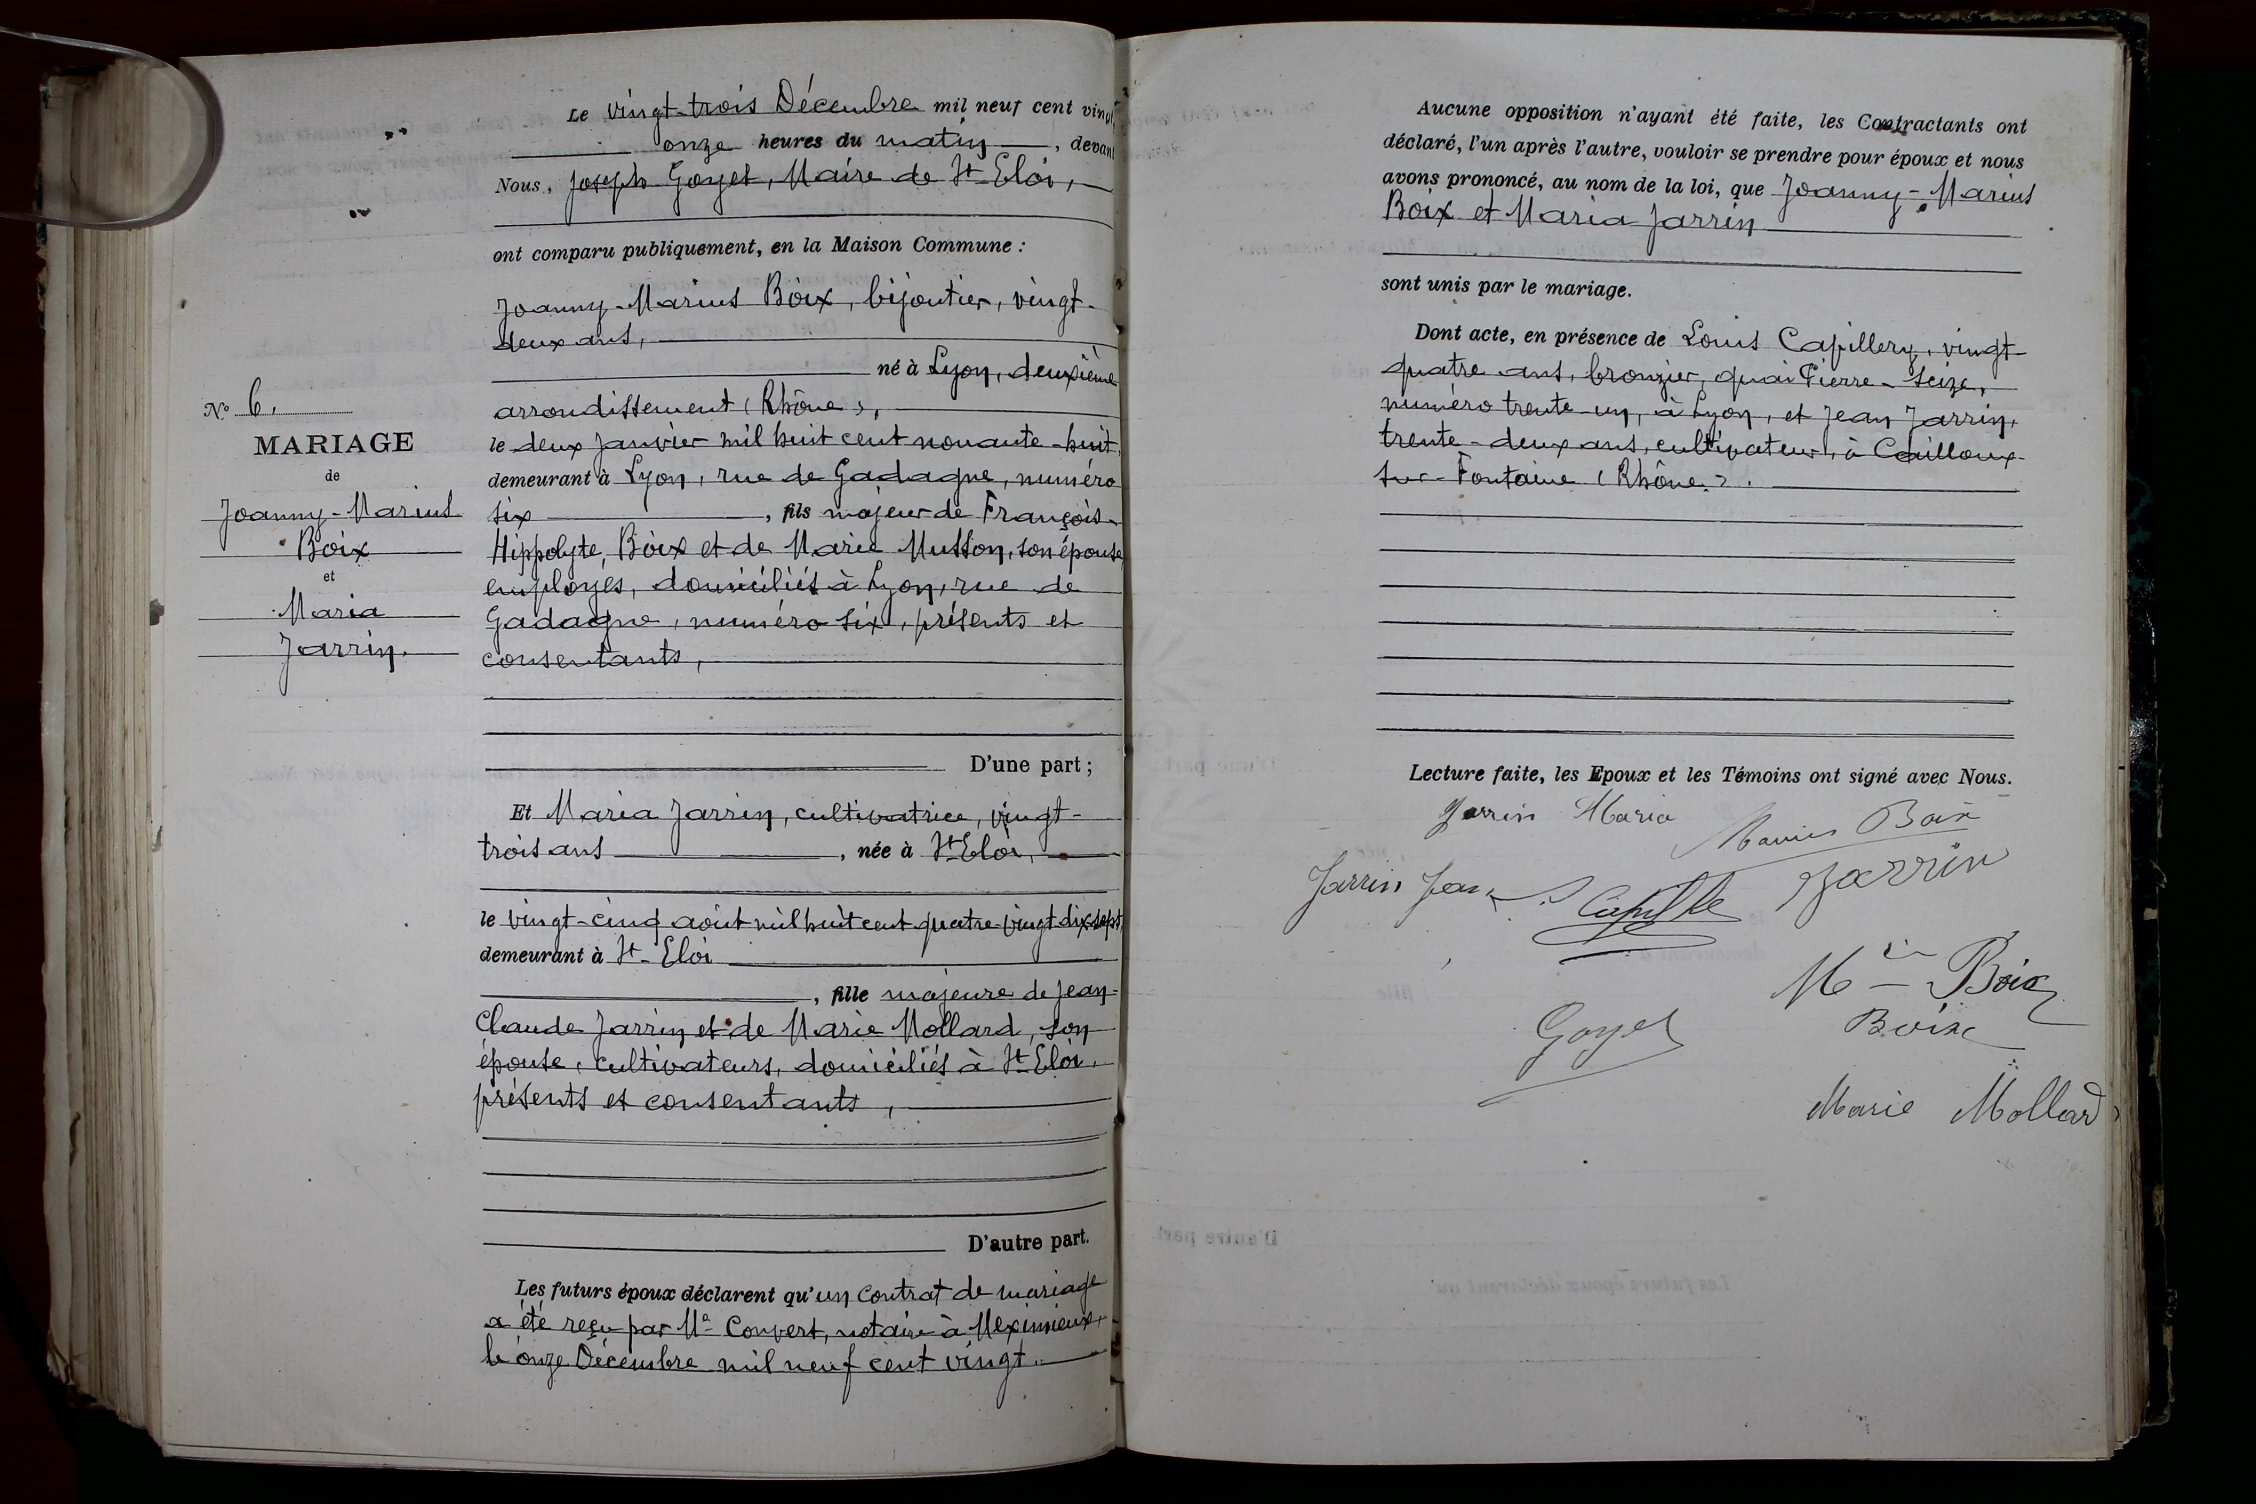 Le vingt-trois Décembre mil neuf cent vingt,
onze heures du matin, devant
Nous, Joseph Goyet, Maire de St Eloi,
ont comparu publiquement, en la Maison Commune :
Joanny-Marius Boix, bijoutier, vingt-
deux ans,
né à Lyon, deuxième
arrondissement (Rhône),
le deux janvier mil huit cent nonante-huit,
demeurant à Lyon, rue de Gadagne, numéro
six, fils majeur de François-
Hippolyte, Boix et de Marie Musson, son épouse,
employés, domiciliés à Lyon, rue de
Gadagne, numéro six, présents et
consentants,
D'une part ;
No 6.
MARIAGE
de
Joanny-Marius
Boix
et
Maria
Jarrin.
Et Maria Jarrin, cultivatrice, vingt-
trois ans, née à St Eloi,
le vingt-cinq août mil huit cent quatre-vingt dix-sept,
demeurant à St-Eloi
, fille majeure de Jean-
Claude Jarrin et de Marie Mollard, son
épouse, cultivateurs, domiciliés à St Eloi,
présents et consentants,
D'autre part.
Les futurs époux déclarent qu'un contrat de mariage
a été reçu par Me Convert, notaire à Meximieux,
le onze Décembre mil neuf cent vingt.
Aucune opposition n'ayant été faite, les Contractants ont
déclaré, l'un après l'autre, vouloir se prendre pour époux et nous
avons prononcé, au nom de la loi, que Joanny-Marius
Boix et Maria Jarrin
sont unis par le mariage.
Dont acte, en présence de Louis Capillery, vingt-
quatre ans, bronzier, quai Pierre-Scize,
numéro trente-un, à Lyon, et Jean Jarrin,
trente-deux ans, cultivateur, à Cailloux-
sur-Fontaine (Rhône).
Lecture faite, les Epoux et les Témoins ont signé avec Nous.
Jarrin Maria
Marius Boix
Jarrin Jean
Jarrin
Boix
Goyet
Boix
Marie Mollard